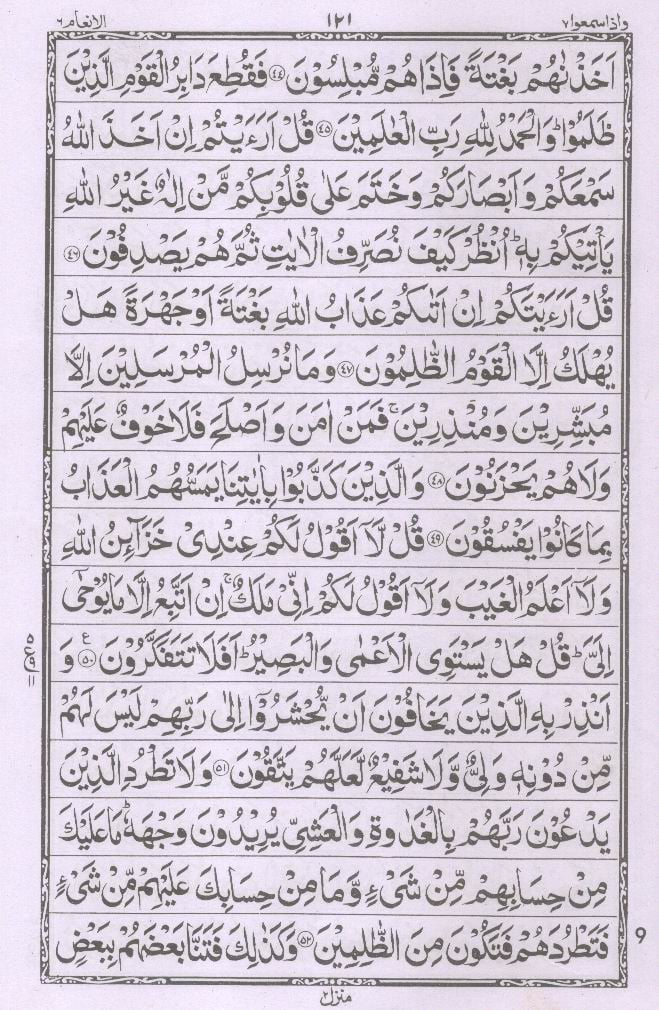 واذاسمعوا۷ ۱۲۱ الانعام ۶
اَخَذْنٰهُمْ بَغْتَةً فَاِذَا هُمْ مُّبْلِسُوْنَ ﴿۴۴﴾ فَقُطِعَ دَابِرُ الْقَوْمِ الَّذِيْنَ
ظَلَمُوْا ؕ وَالْحَمْدُ لِلّٰهِ رَبِّ الْعٰلَمِيْنَ ﴿۴۵﴾ قُلْ اَرَءَيْتُمْ اِنْ اَخَذَ اللّٰهُ
سَمْعَكُمْ وَاَبْصَارَكُمْ وَخَتَمَ عَلٰى قُلُوْبِكُمْ مَّنْ اِلٰهٌ غَيْرُ اللّٰهِ
يَاْتِيْكُمْ بِهٖ ؕ اُنْظُرْ كَيْفَ نُصَرِّفُ الْاٰيٰتِ ثُمَّ هُمْ يَصْدِفُوْنَ ﴿۴۶﴾
قُلْ اَرَءَيْتَكُمْ اِنْ اَتٰىكُمْ عَذَابُ اللّٰهِ بَغْتَةً اَوْ جَهْرَةً هَلْ
يُهْلَكُ اِلَّا الْقَوْمُ الظّٰلِمُوْنَ ﴿۴۷﴾ وَمَا نُرْسِلُ الْمُرْسَلِيْنَ اِلَّا
مُبَشِّرِيْنَ وَمُنْذِرِيْنَ ۚ فَمَنْ اٰمَنَ وَاَصْلَحَ فَلَا خَوْفٌ عَلَيْهِمْ
وَلَا هُمْ يَحْزَنُوْنَ ﴿۴۸﴾ وَالَّذِيْنَ كَذَّبُوْا بِاٰيٰتِنَا يَمَسُّهُمُ الْعَذَابُ
بِمَا كَانُوْا يَفْسُقُوْنَ ﴿۴۹﴾ قُلْ لَّاۤ اَقُوْلُ لَكُمْ عِنْدِىْ خَزَآئِنُ اللّٰهِ
وَلَاۤ اَعْلَمُ الْغَيْبَ وَلَاۤ اَقُوْلُ لَكُمْ اِنِّىْ مَلَكٌ ۚ اِنْ اَتَّبِعُ اِلَّا مَا يُوْحٰۤى
اِلَىَّ ؕ قُلْ هَلْ يَسْتَوِى الْاَعْمٰى وَالْبَصِيْرُ ؕ اَفَلَا تَتَفَكَّرُوْنَ ﴿۵۰﴾ ع وَ
اَنْذِرْ بِهِ الَّذِيْنَ يَخَافُوْنَ اَنْ يُّحْشَرُوْۤا اِلٰى رَبِّهِمْ لَيْسَ لَهُمْ
مِّنْ دُوْنِهٖ وَلِىٌّ وَّلَا شَفِيْعٌ لَّعَلَّهُمْ يَتَّقُوْنَ ﴿۵۱﴾ وَلَا تَطْرُدِ الَّذِيْنَ
يَدْعُوْنَ رَبَّهُمْ بِالْغَدٰوةِ وَالْعَشِىِّ يُرِيْدُوْنَ وَجْهَهٗ ؕ مَا عَلَيْكَ
مِنْ حِسَابِهِمْ مِّنْ شَىْءٍ وَّمَا مِنْ حِسَابِكَ عَلَيْهِمْ مِّنْ شَىْءٍ
فَتَطْرُدَهُمْ فَتَكُوْنَ مِنَ الظّٰلِمِيْنَ ﴿۵۲﴾ وَكَذٰلِكَ فَتَنَّا بَعْضَهُمْ بِبَعْضٍ
منزل۲
۵
ع
۹
۱۱
9